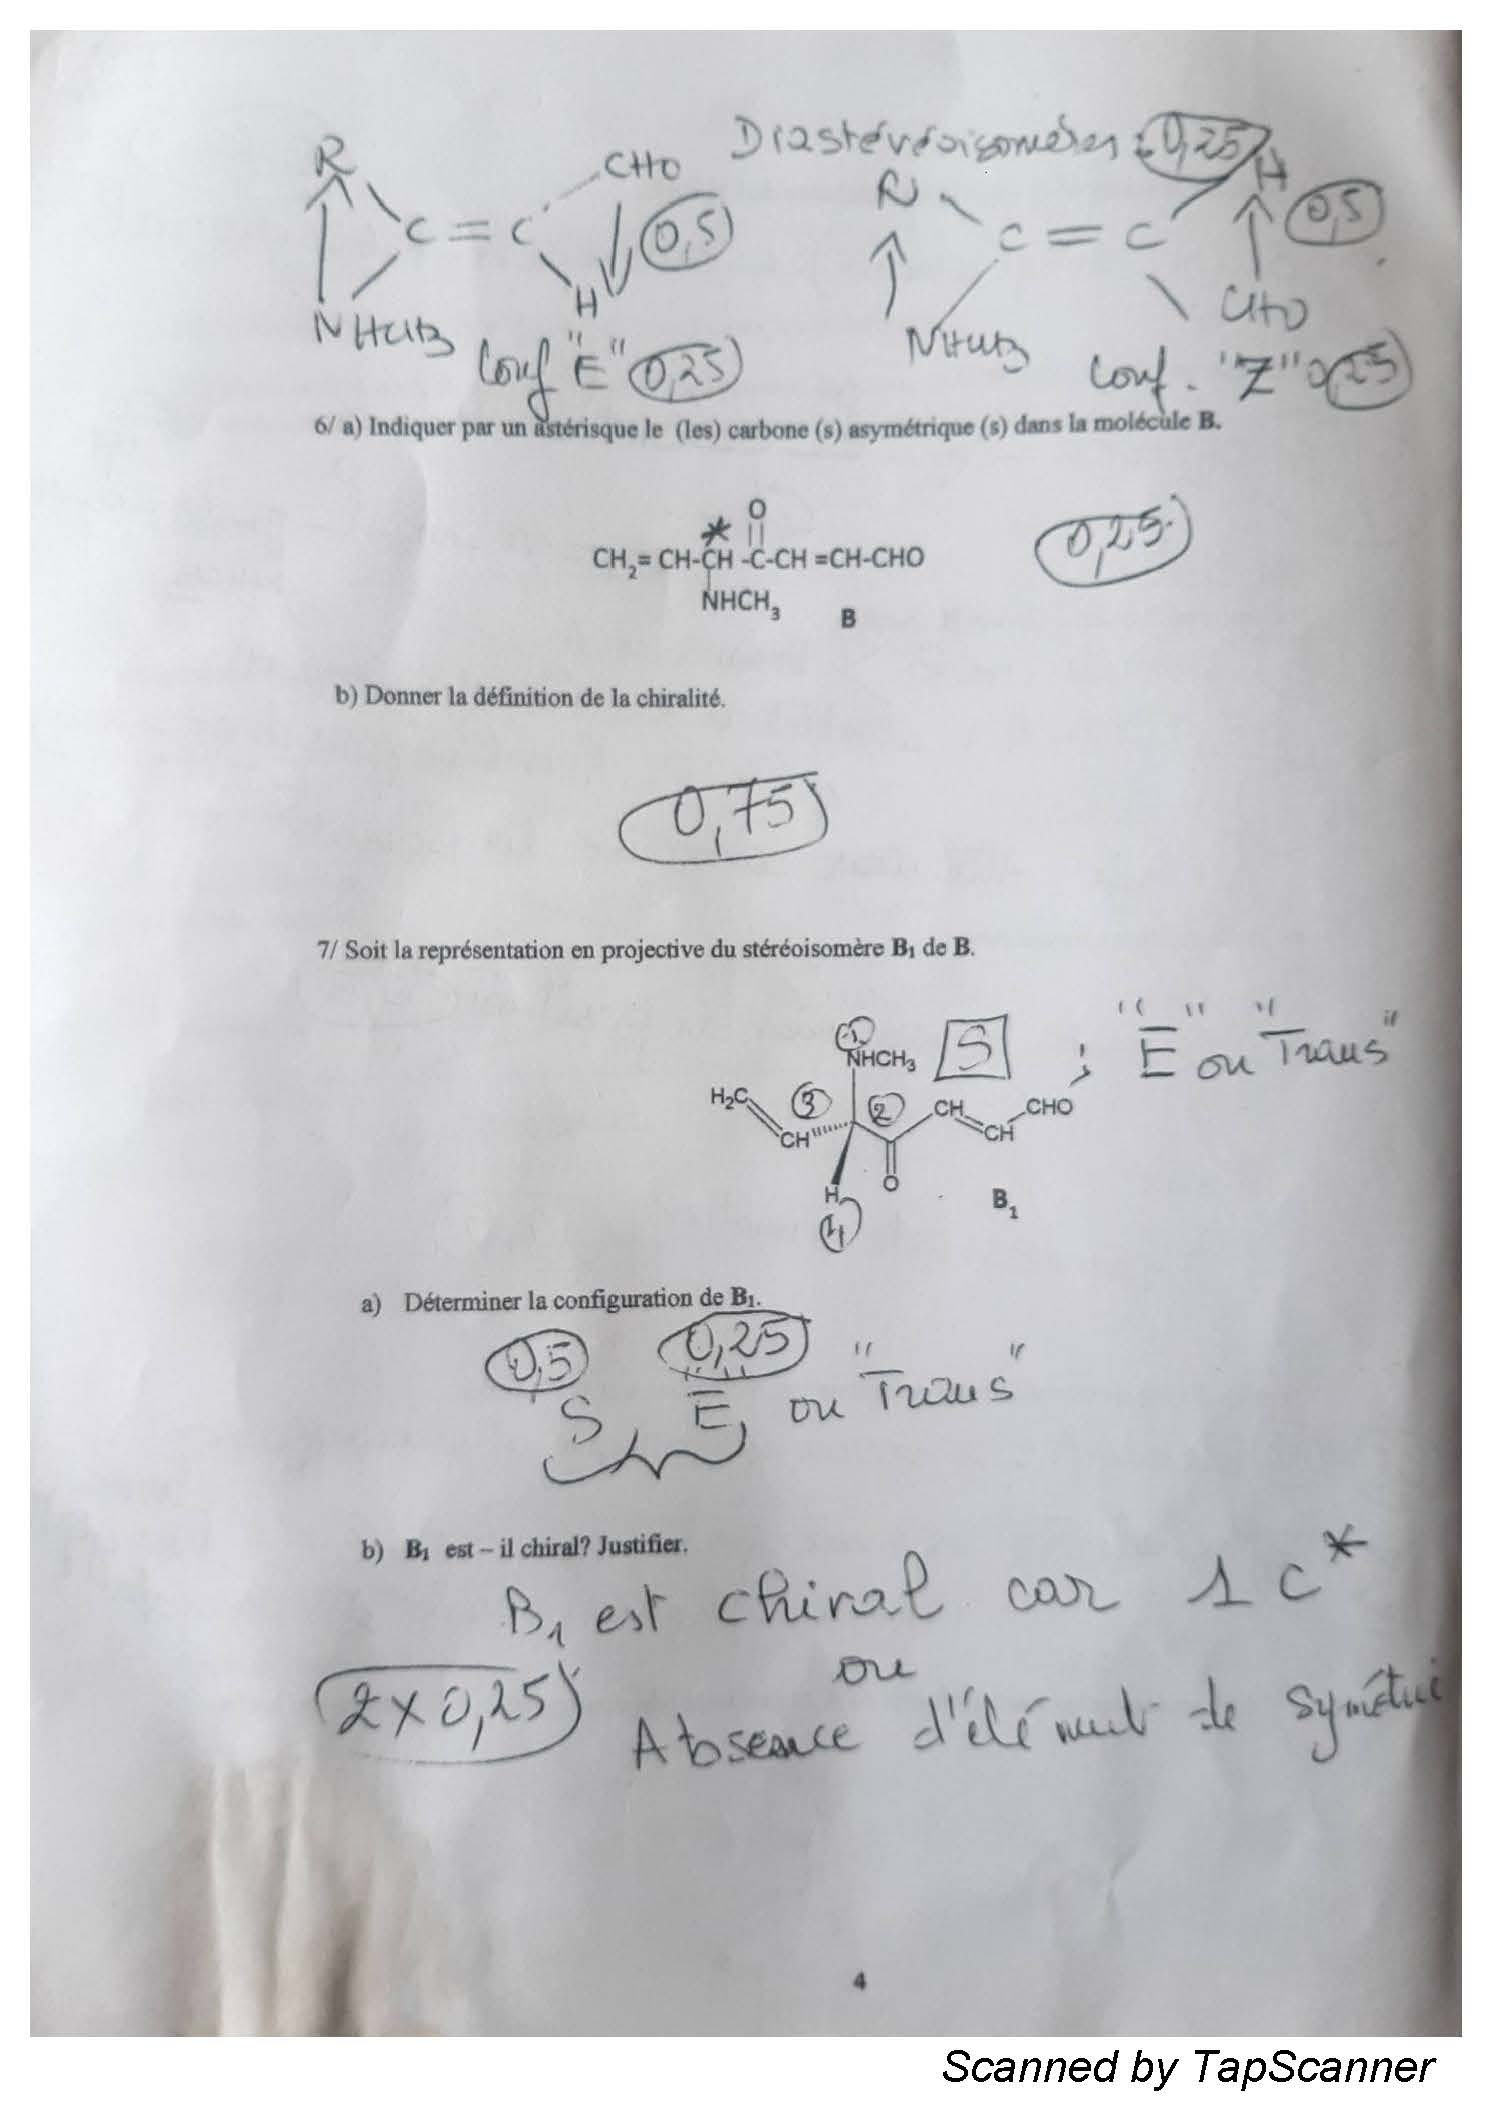 Diastéréoisomères : 0,25
R CHO R H
C = C 0,5 C = C 0,5
H CHO
NHCH3 NHCH3
Conf "E" 0,25 Conf. "Z" 0,25
6/ a) Indiquer par un astérisque le (les) carbone (s) asymétrique (s) dans la molécule B.
* O
CH2= CH-CH -C-CH =CH-CHO 0,25
NHCH3 B
b) Donner la définition de la chiralité.
0,75
7/ Soit la représentation en projective du stéréoisomère B1 de B.
1
NHCH3 S ; "E" ou "Trans"
H2C 3 2 CH CHO
CH CH
H O B1
4
a) Déterminer la configuration de B1.
0,5 0,25
S, E, ou "Trans"
b) B1 est – il chiral? Justifier.
B1 est chiral car 1 C*
ou
2 x 0,25 Absence d'élément de symétrie
4
Scanned by TapScanner